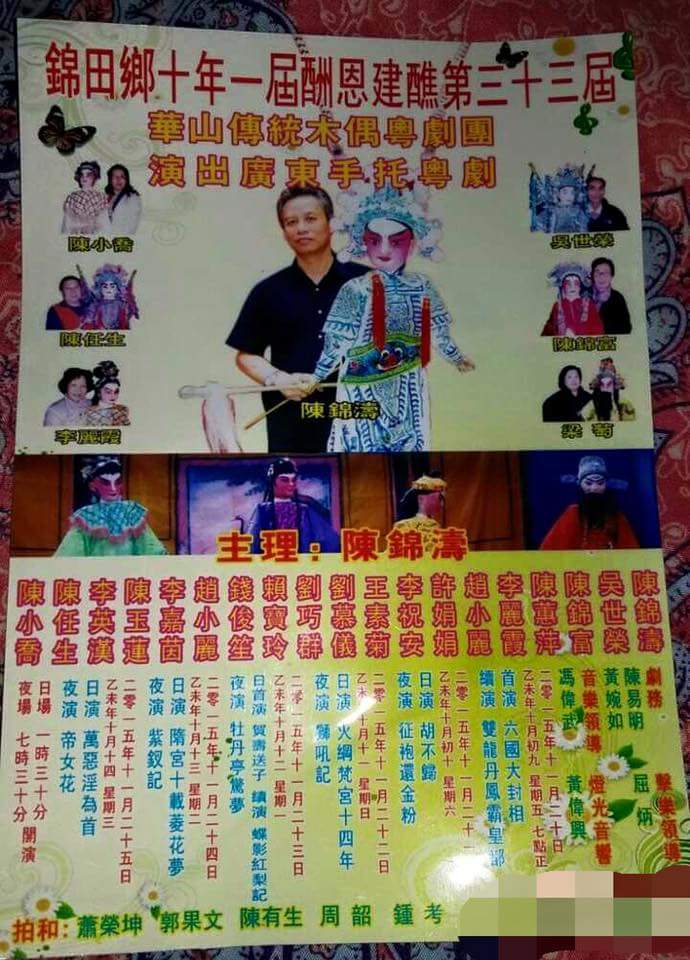 錦田鄉十年一屆酬恩建醮第三十三屆
華山傳統木偶粵劇團
演出廣東手托粵劇
陳小喬
吳世榮
陳任生
陳錦富
李麗霞
梁菊
陳錦濤
主理：陳錦濤
陳錦濤
吳世榮
陳錦富
陳蕙萍
李麗霞
趙小麗
許娟娟
李祝安
王素菊
劉慕儀
劉巧群
賴寶玲
錢俊笙
趙小麗
李嘉茵
陳玉蓮
李英漢
陳任生
陳小喬
劇務
陳易明
黃婉如
擊樂領導
屈炳
音樂領導
馮偉武
燈光音響
黃偉興
二零一五年十一月二十日
乙未年十月初九 星期五 七點正
首演 六國大封相
續演 雙龍丹鳳霸皇都
二零一五年十一月二十一
乙未年十月初十 星期六
日演 胡不歸
夜演 征袍還金粉
二零一五年十一月二十二日
乙未年十月十一 星期日
日演 火網梵宮十四年
夜演 獅吼記
二零一五年十一月二十三日
乙未年十月十二 星期一
日首演 賀壽送子 續演 蝶影紅梨記
夜演 牡丹亭驚夢
二零一五年十一月二十四日
乙未年十月十三 星期二
日演 隋宮十載菱花夢
夜演 紫釵記
二零一五年十一月二十五日
乙未年十月十四 星期三
日演 萬惡淫為首
夜演 帝女花
日場 一時三十分
夜場 七時三十分 開演
拍和：蕭榮坤 郭果文 陳有生 周韶 鍾考